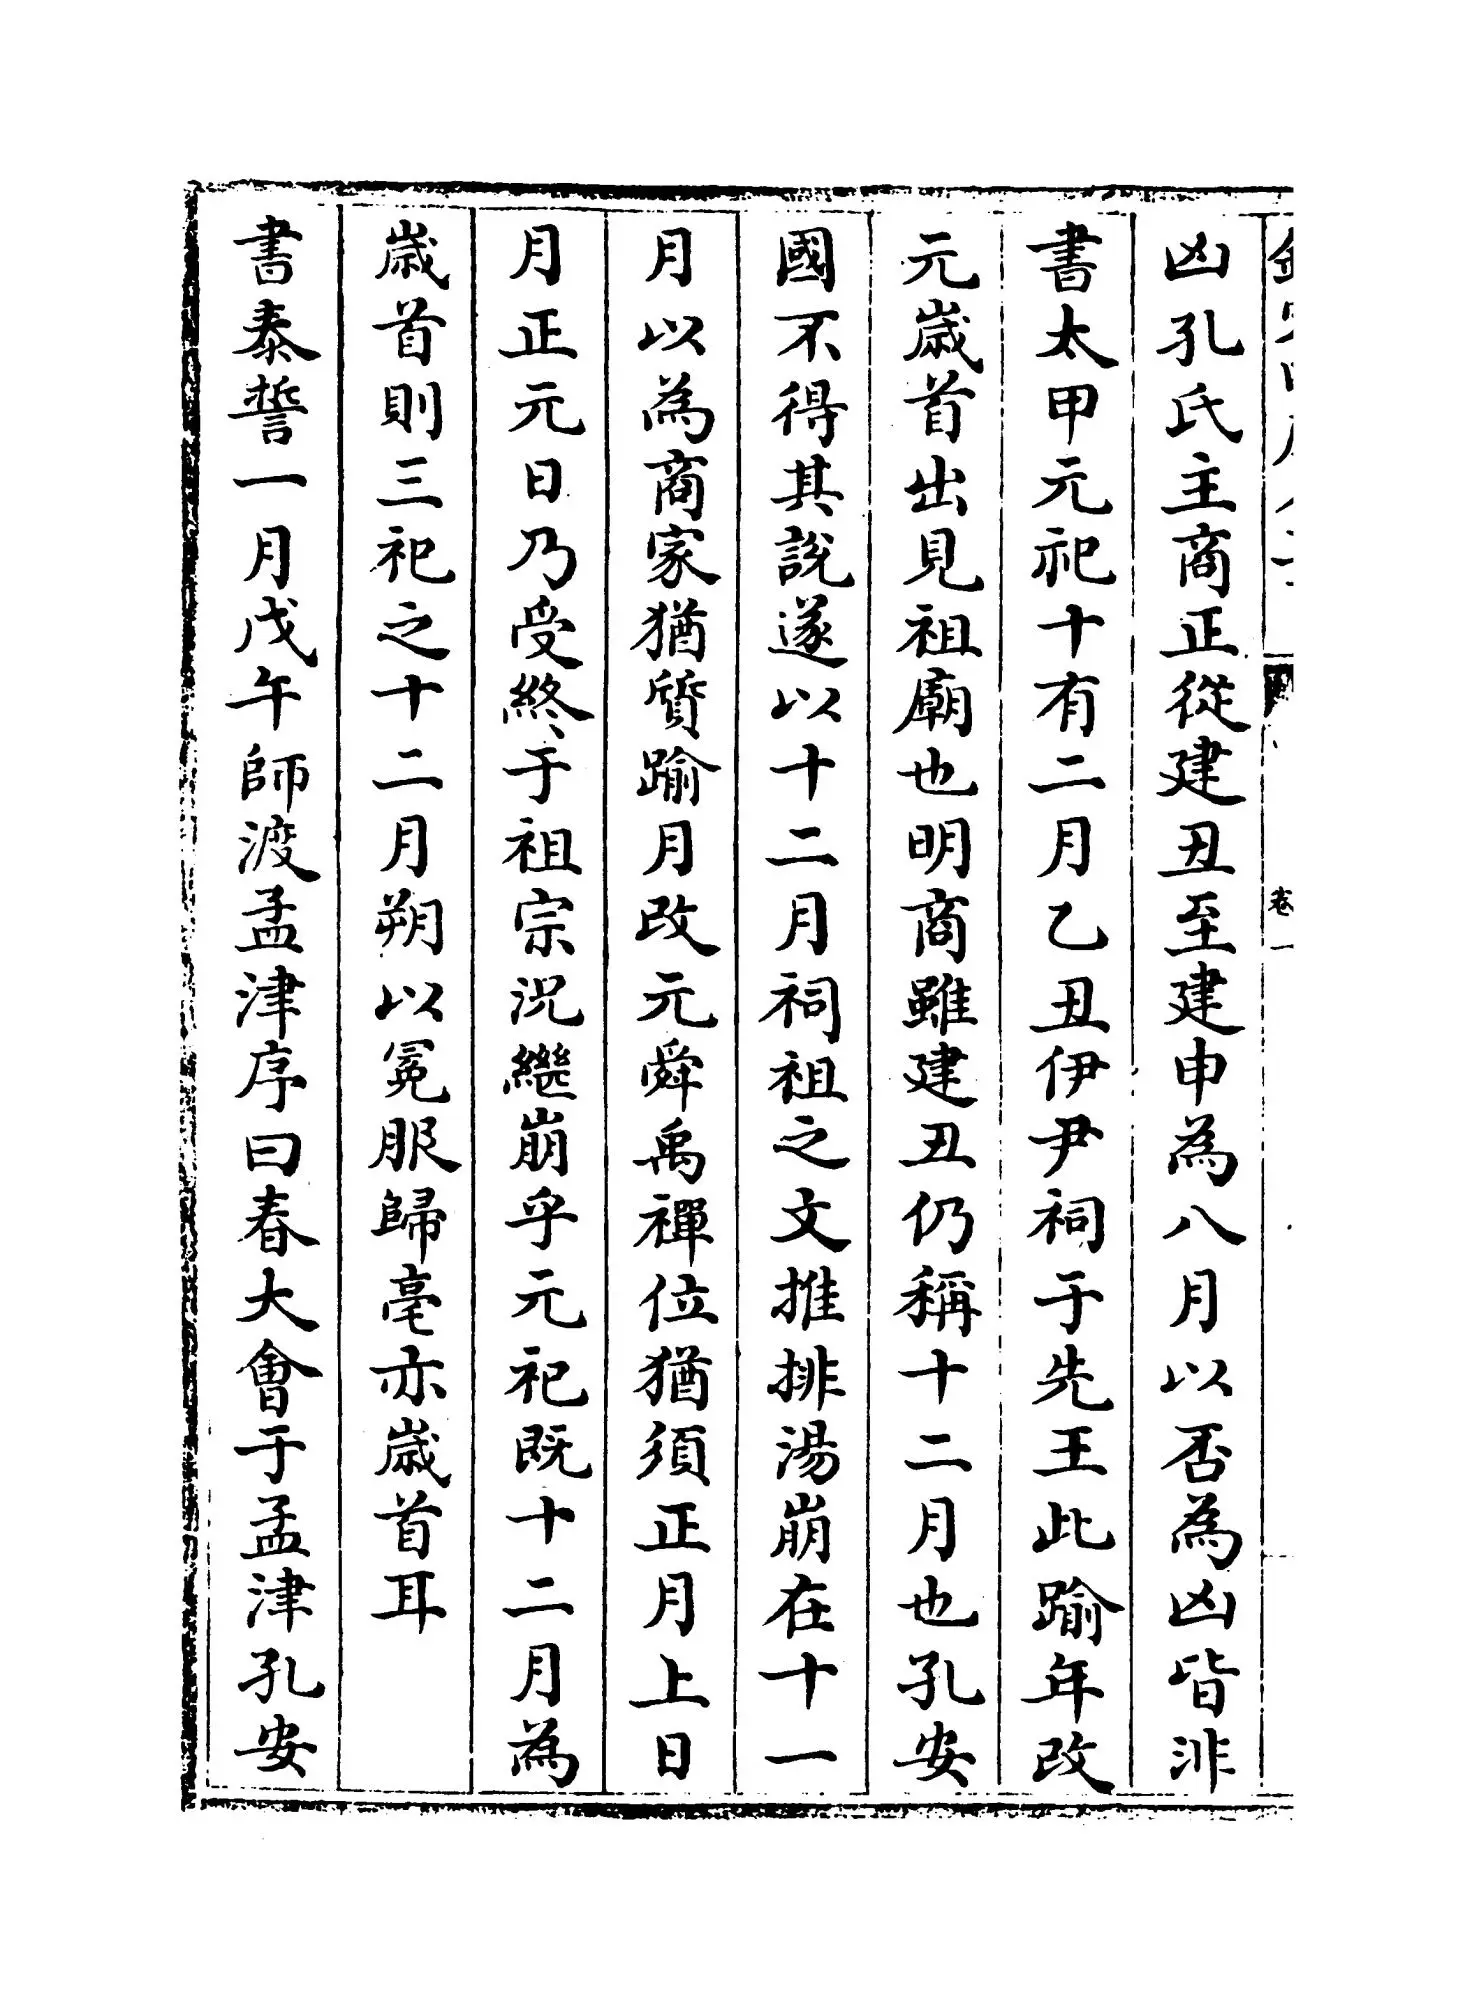 凶孔氏主商正從建丑至建申為八月以否為凶皆非
書太甲元祀十有二月乙丑伊尹祠于先王此踰年改
元歲首出見祖廟也明商雖建丑仍稱十二月也孔安
國不得其說遂以十二月祠祖之文推排湯崩在十一
月以為商家猶質踰月改元舜禹禪位猶須正月上日
月正元日乃受終于祖宗況繼崩乎元祀既十二月為
歲首則三祀之十二月朔以冕服歸亳亦歲首耳
書泰誓一月戊午師渡孟津序曰春大會于孟津孔安
卷一